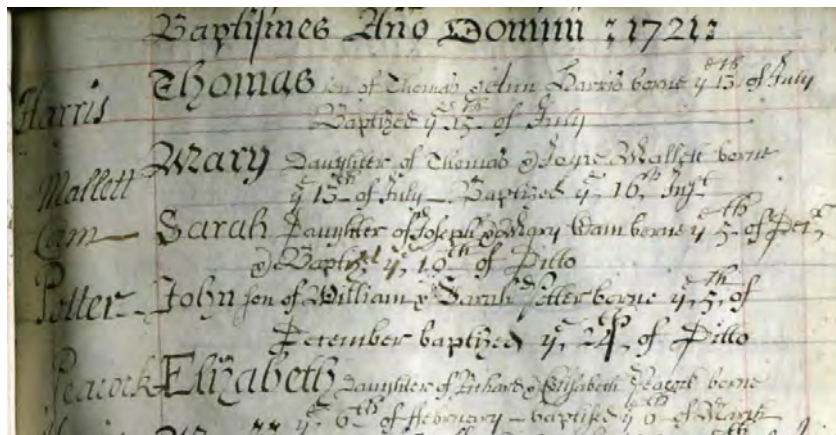 Baptismes Año Domini : 1721:
Harris Thomas son of Thomas & Ann Harris borne yᵉ 13ᵗʰ of July
Baptized yᵉ 15ᵗʰ of July
Mallett Mary Daughter of Thomas & Joyne Mallett borne
yᵉ 13ᵗʰ of July Baptized yᵉ 16ᵗʰ Inſᵗ
Cam Sarah Daughter of Joseph & Mary Cam borne yᵉ 5ᵗʰ of Decʳ
& Baptized yᵉ 10ᵗʰ of Ditto
Potter John son of William & Sarah Potter borne yᵉ 5ᵗʰ of
December baptized yᵉ 24ᵗʰ of Ditto
Peacock Elizabeth Daughter of Richard & Elisabeth Peacock borne
yᵉ 6ᵗʰ of February baptised yᵉ of March